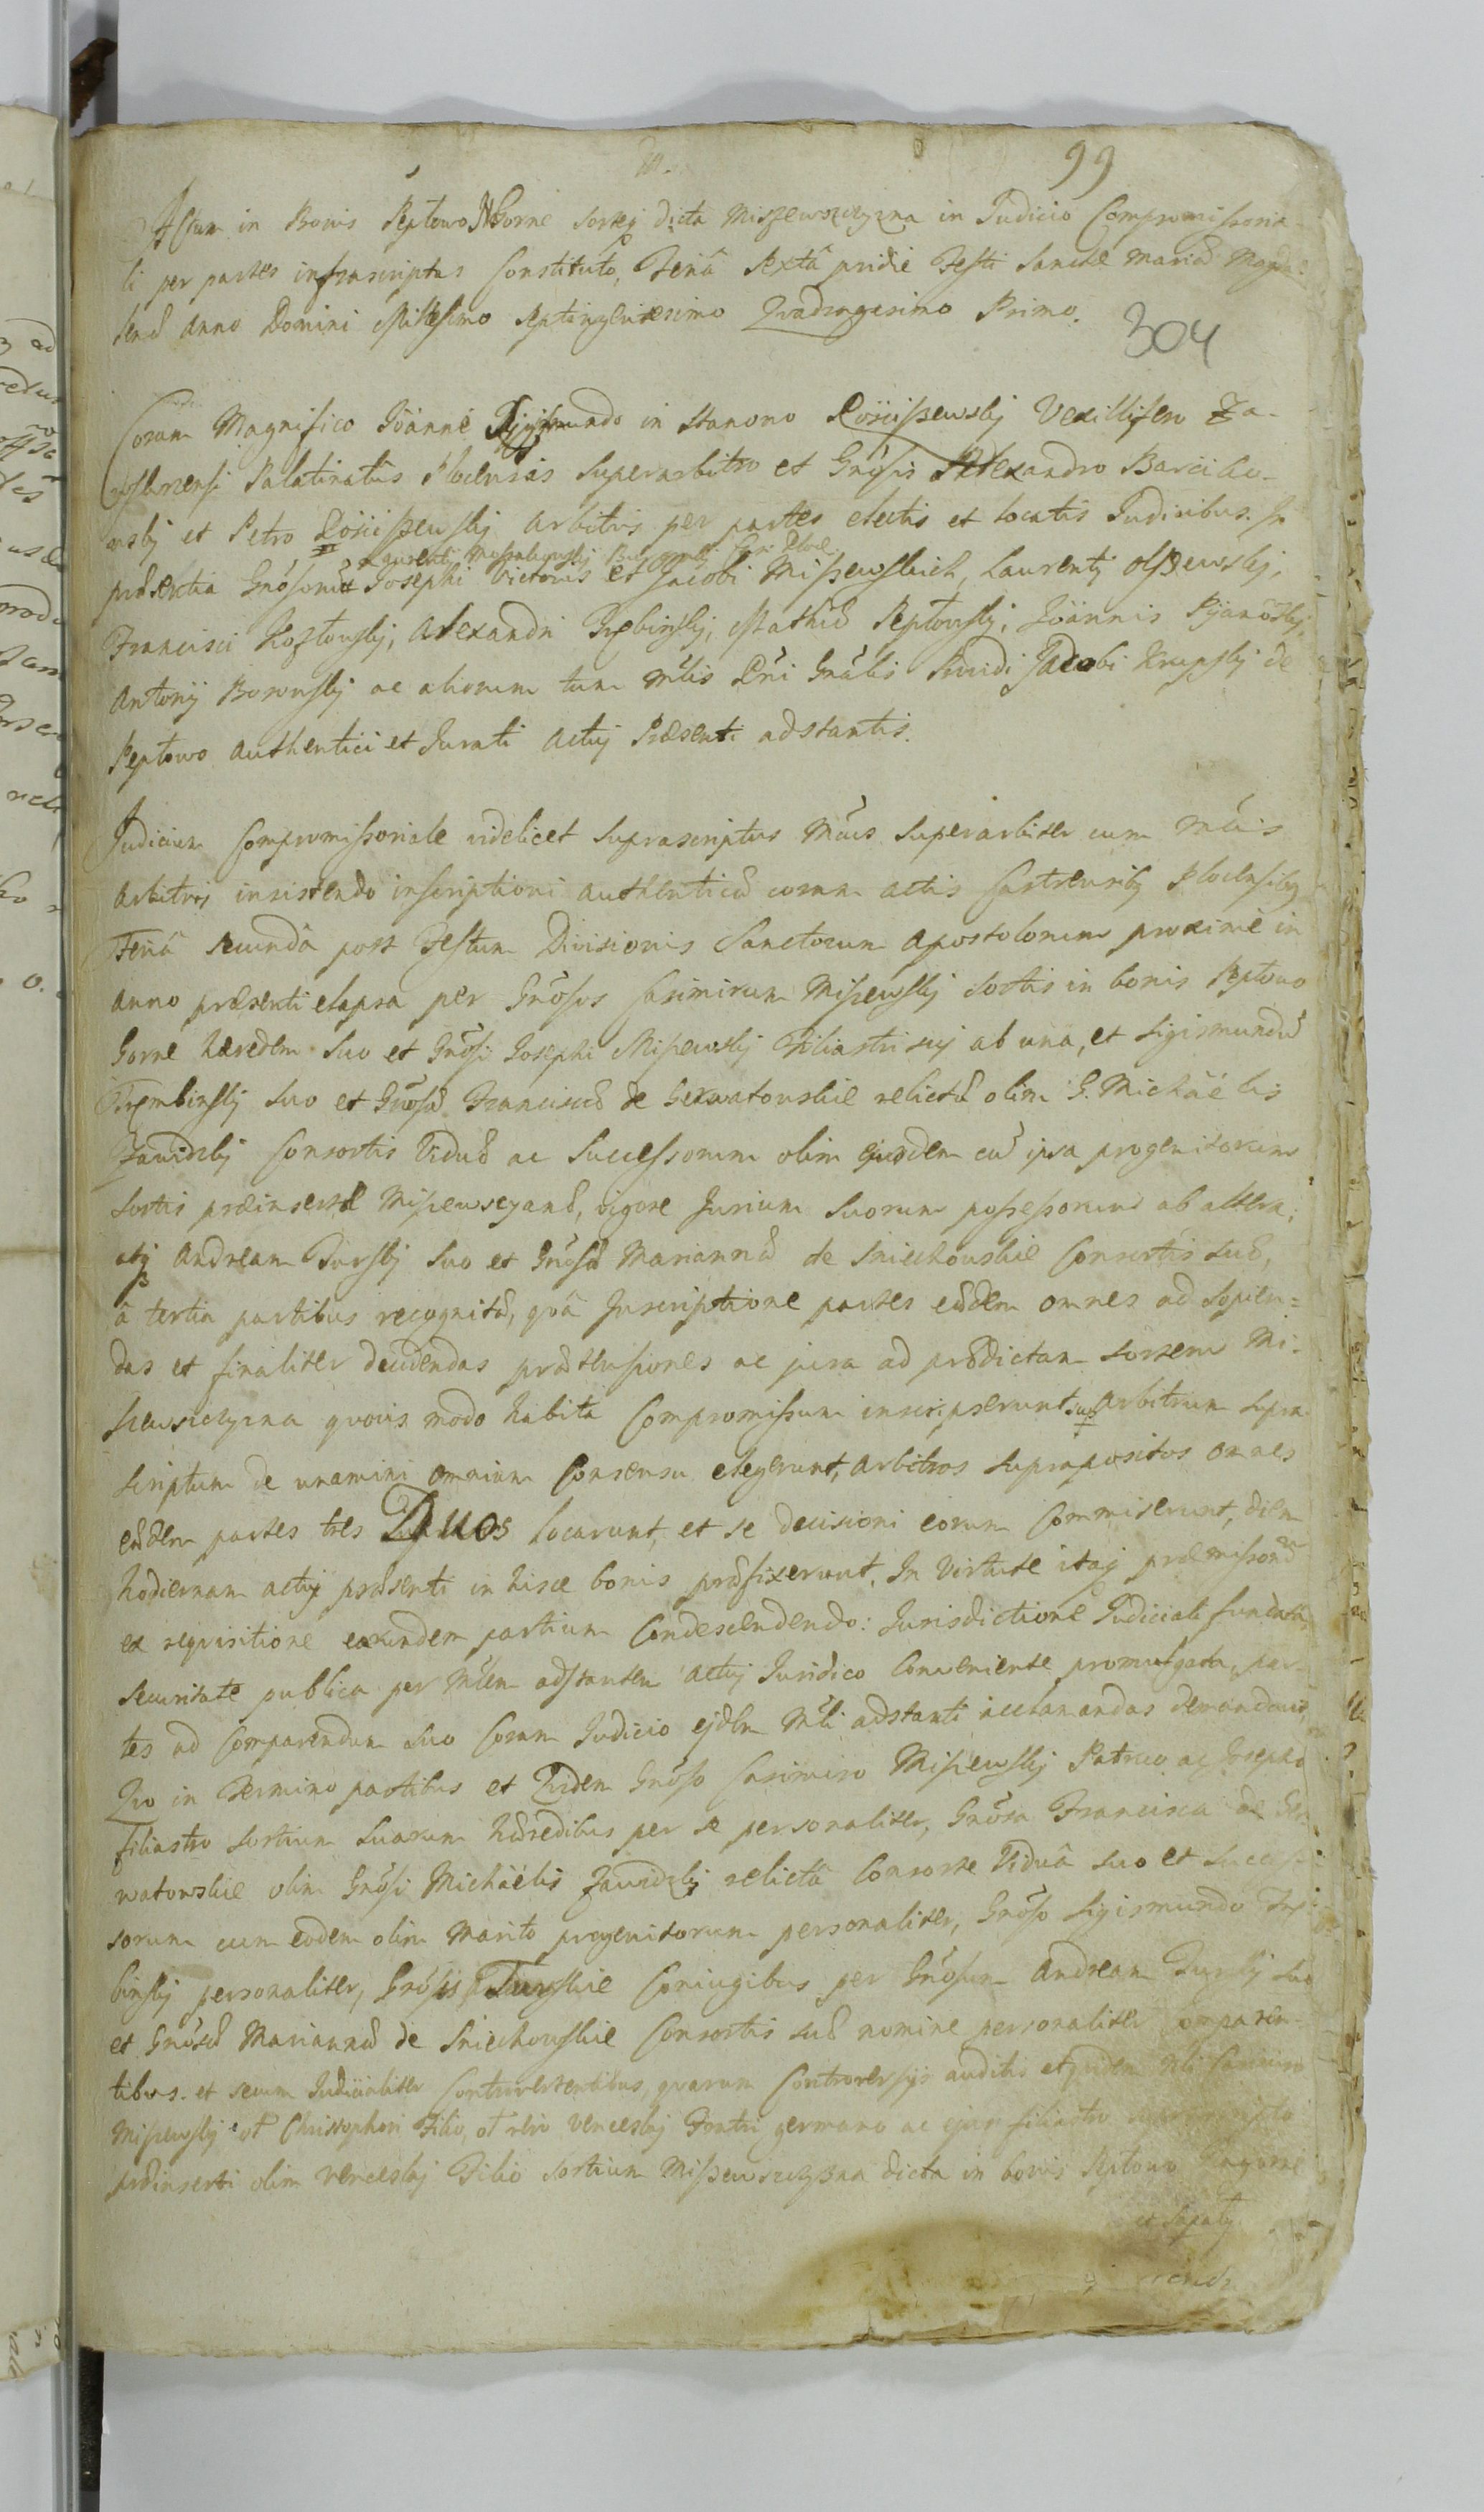 99
Actum in Bonis Septowo Gorne sortej dicta Miszewszczyzna in Judicio Compromissoria-
li per partes infrascriptas Constituto, Feriâ Sextâ pridie Festi Sanctæ Mariæ Magda-
lenæ Anno Domini Millesimo Septingentesimo Quadragesimo Primo.
304
Coram Magnifico Joanne in Stanono Rościszewskj Vexillifero Za-
Palatinatûs Plocensis Superarbitro et Gnosis Alexandro Barciko-
wskj et Petro Rościszewskj Arbitris per partes electis et locatis Judicibus. In
Laurentj
præsentia Gnosorum Josephi Victoris et Jacobi Miszewskich, Laurentj Olszewskj,
Francisci Kozłowskj, Alexandri Trębinskj, Mathiæ Septowskj, Joannis
Antonij Borowskj ac aliorum tum Mlis Dni Gnalis Jacobi Krupskj de
Septowo authentici et Jurati actuj Præsenti adstantis.
Judicium Compromissoriale videlicet suprascriptus Mcus Superarbiter cum
Arbitris insistendo inscriptioni authenticæ coram actis Castrensibq Plocensibq
Feriâ secundâ post Festum Divisionis Sanctorum Apostolorum proximè in
anno præsenti elapsa per Gnosos Casimirum Miszewskj sortis in bonis Septowo
Gorne hæredem suo et Gnosi Josephi Miszewskj Filiastri suj ab una, et Sigismundũ
Trębinskj suo et Gnosæ Franciscæ de relictæ olim G. Michaëlis
Zawidzkj Consortis Viduæ ac Successorum olim ejusdem cũ ipsa progenitorum
sortis præinsertæ vigore Jurium suorum possessorum ab altera;
atq Andream Turskj suo et Gnosæ Mariannæ de Sniechowskie Consortis suæ,
â tertia partibus recognitæ, quâ Inscriptione partes eædem omnes ad sopien-
das et finaliter decidendas prætensiones ac jura ad prædictam sortem Mi-
szewszczyzna quovis modo habita Compromissum inscripserunt, Arbitrum supra-
scriptum de unamini omnium Consensu elegerunt, Arbitros suprapositos omnes
eædem partes tres Duos locarunt, et se decisioni eorum Commiserunt, diem
hodiernam actuj præsenti in hisce bonis præfixerunt. In Virtute itaq præmissorũ
ex requisitione earundem partium Condescendendo: Jurisdictione Judiciali fundata
securitate publica per adstantem actuj Juridico Conveniente promulgata, par-
tes ad Comparendum suo Coram Judicio Mli adstanti acclamandas demandavit.
Quo in Termino partibus et Quidem Gnoso Casimiro Miszewskj Patruo ac Josepho
filiastro sortium suarum hæredibus per se personaliter, Gnosa Francisca de
olim Gnosi Michaëlis Zawidzkj relictâ Consorte Viduâ suo et Succes-
sorum cum eodem olim Marito progenitorum personaliter, Gnoso Sigismundo Trę-
binskj personaliter, Gnosis Turskie Coniugibus per Gnosum Andream Turskj suo
et Gnosæ Mariannæ de Sniechowskie Consortis suæ nomine personaliter Comparen-
tibus et secum Judicialiter Controvertentibus, quarum Controversijs auditis
Miszewskj ol Christophori Filio, Venceslaj Fratri germano ac ejus filiastro
præinserti olim Venceslaj Filio sortium Miszewszczyzna dicta in bonis Septowo